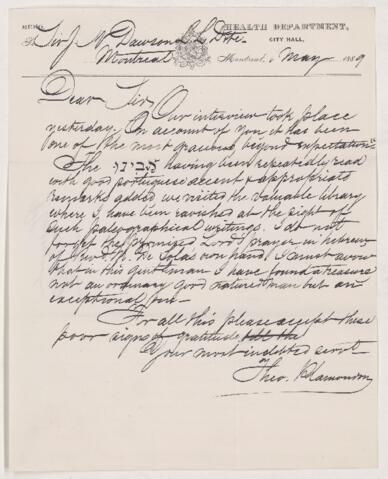 MEMO.
HEALTH DEPARTMENT,
To Sir J W Dawson L L D etc.
CITY HALL,
Montreal
Montreal, 6 May 1889
Dear Sir, Our interview took place
yesterday. On account of you it has been
one of the most gracious beyond expectation.
The אבינו having been repeatedly read
with good portuguese accent & appropriate
remarks added we visited the valuable library
where I have been ravished at the sight of
such paleographical writings. I do not
forget the promised Lord's prayer in hebrew
of Revd. Mr. De Sola's own hand. I must avow
that in this gentleman I have found a treasure
not an ordinary good natured man but an
exceptional
For all this please accept these
poor signs of gratitude
Your most indebted servt
Theo.